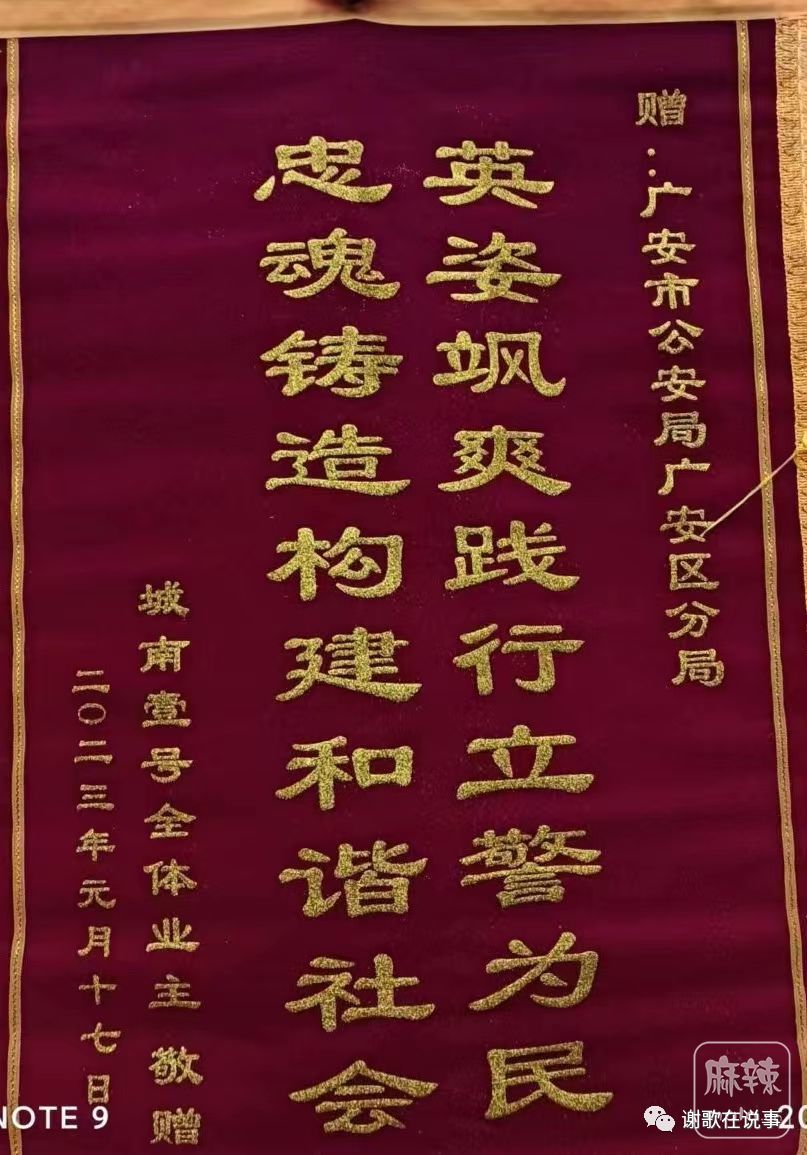 赠：广安市公安局广安区分局
英姿飒爽践行立警为民
忠魂铸造构建和谐社会
城南壹号全体业主敬赠
二〇二三年元月十七日
NOTE 9
谢歌在说事
麻辣
20